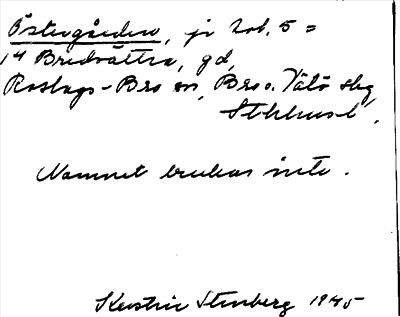 Östergården, jr Lob. 5 =
14 Bredsättra, gd,
Roslags-Bro sn, Bro o. Vätö slg,
Sthlms l.
Namnet brukas inte.
Kerstin Stenberg 1945